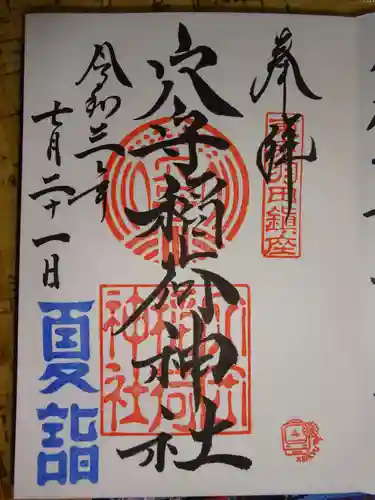 奉拝
東京羽田鎮座
穴守稲荷神社
穴守稲荷神社
令和三年
七月二十一日
夏詣
4